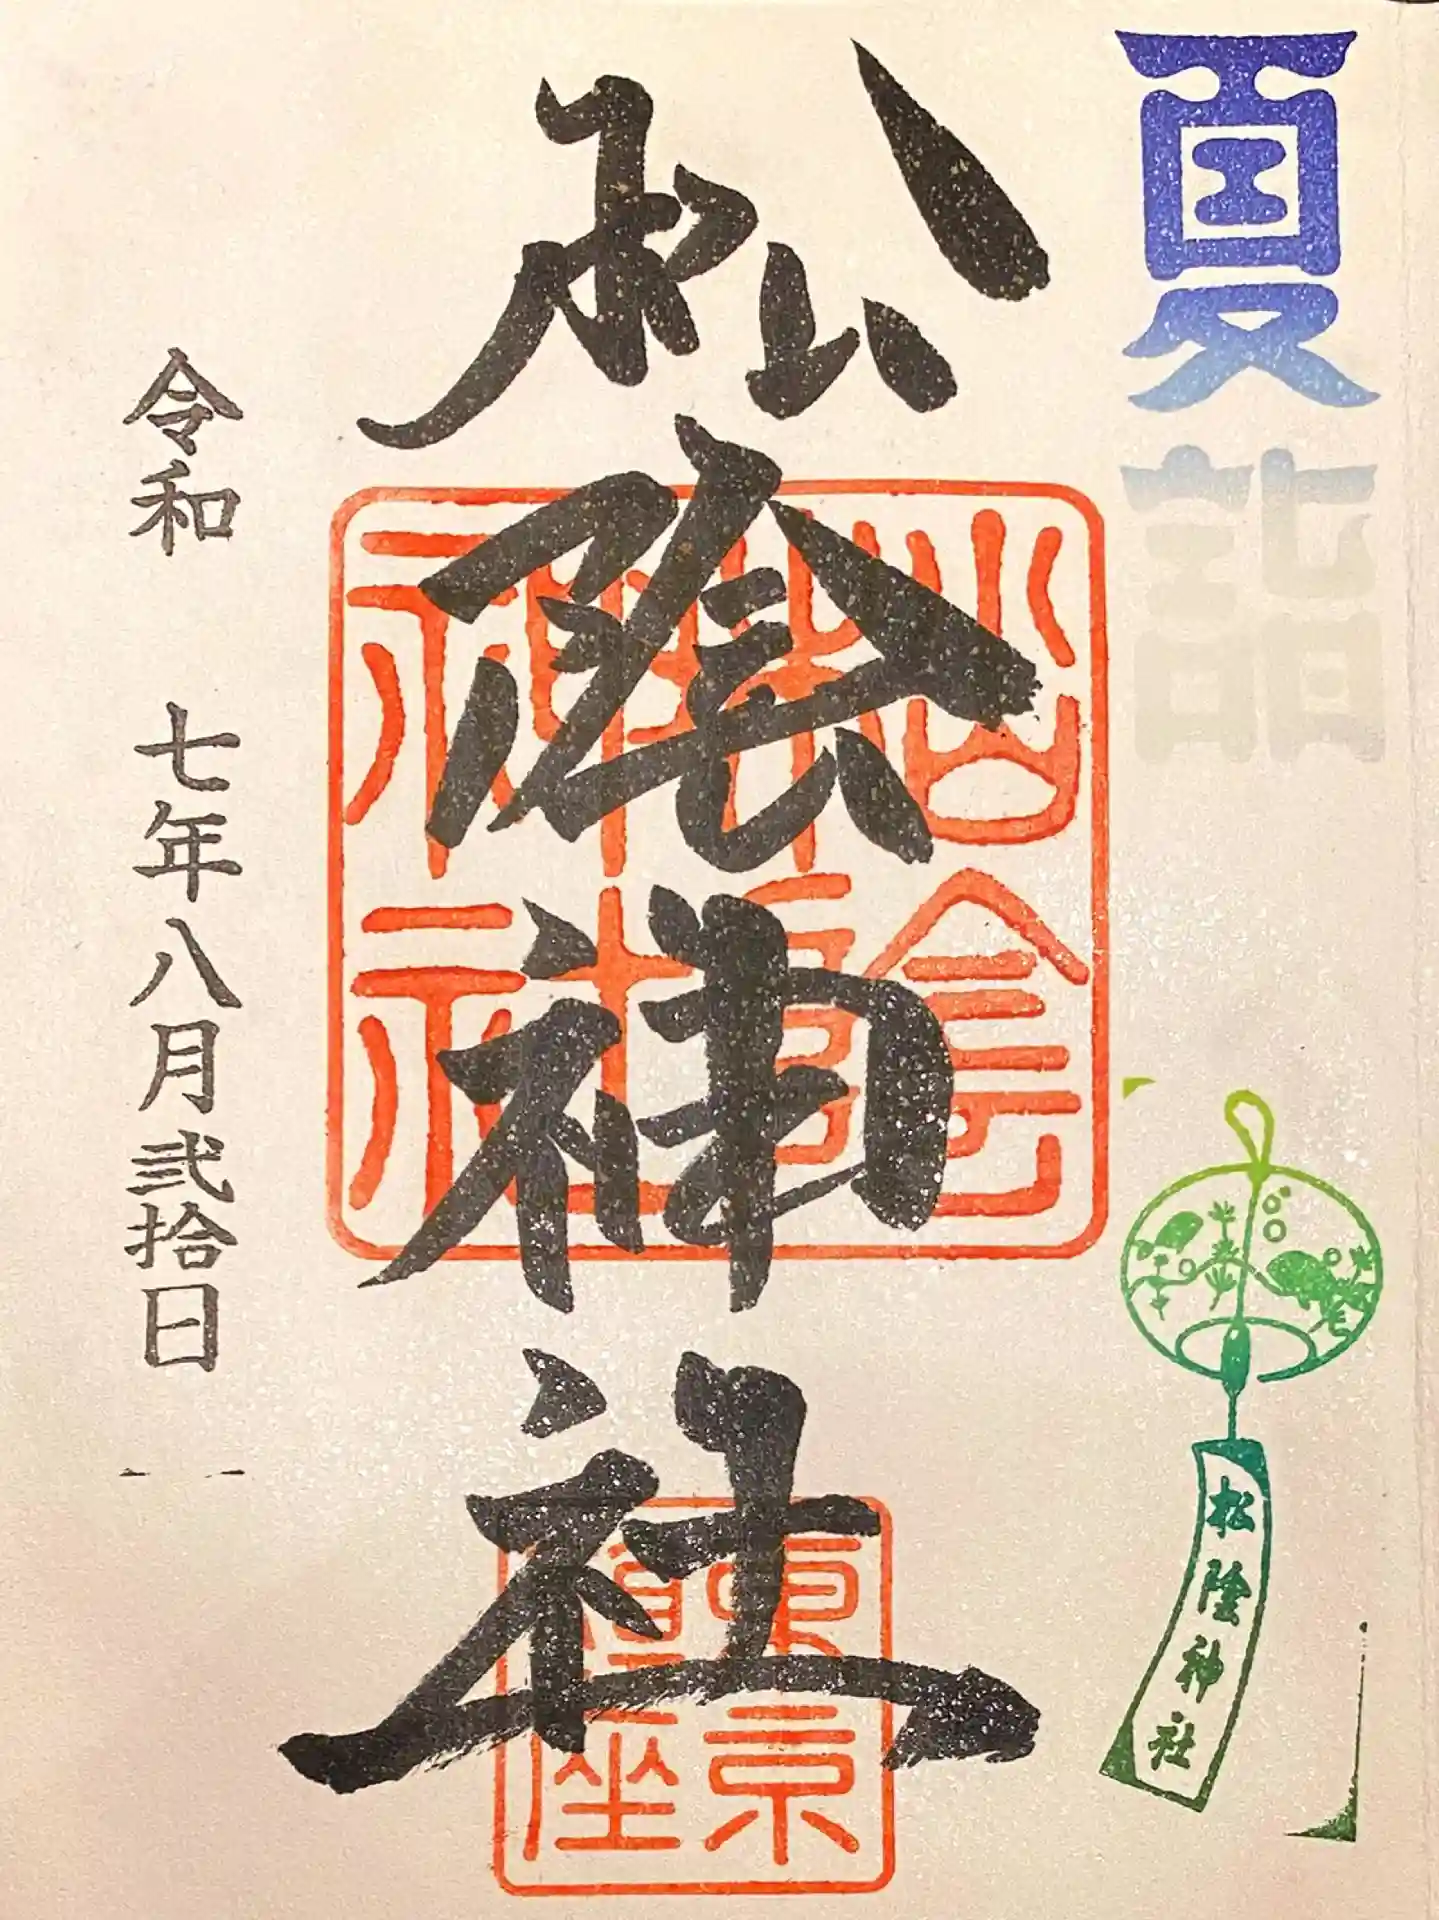 夏詣
松陰神社
松陰神社
松陰神社
東京鎮座
令和 七年八月弐拾日